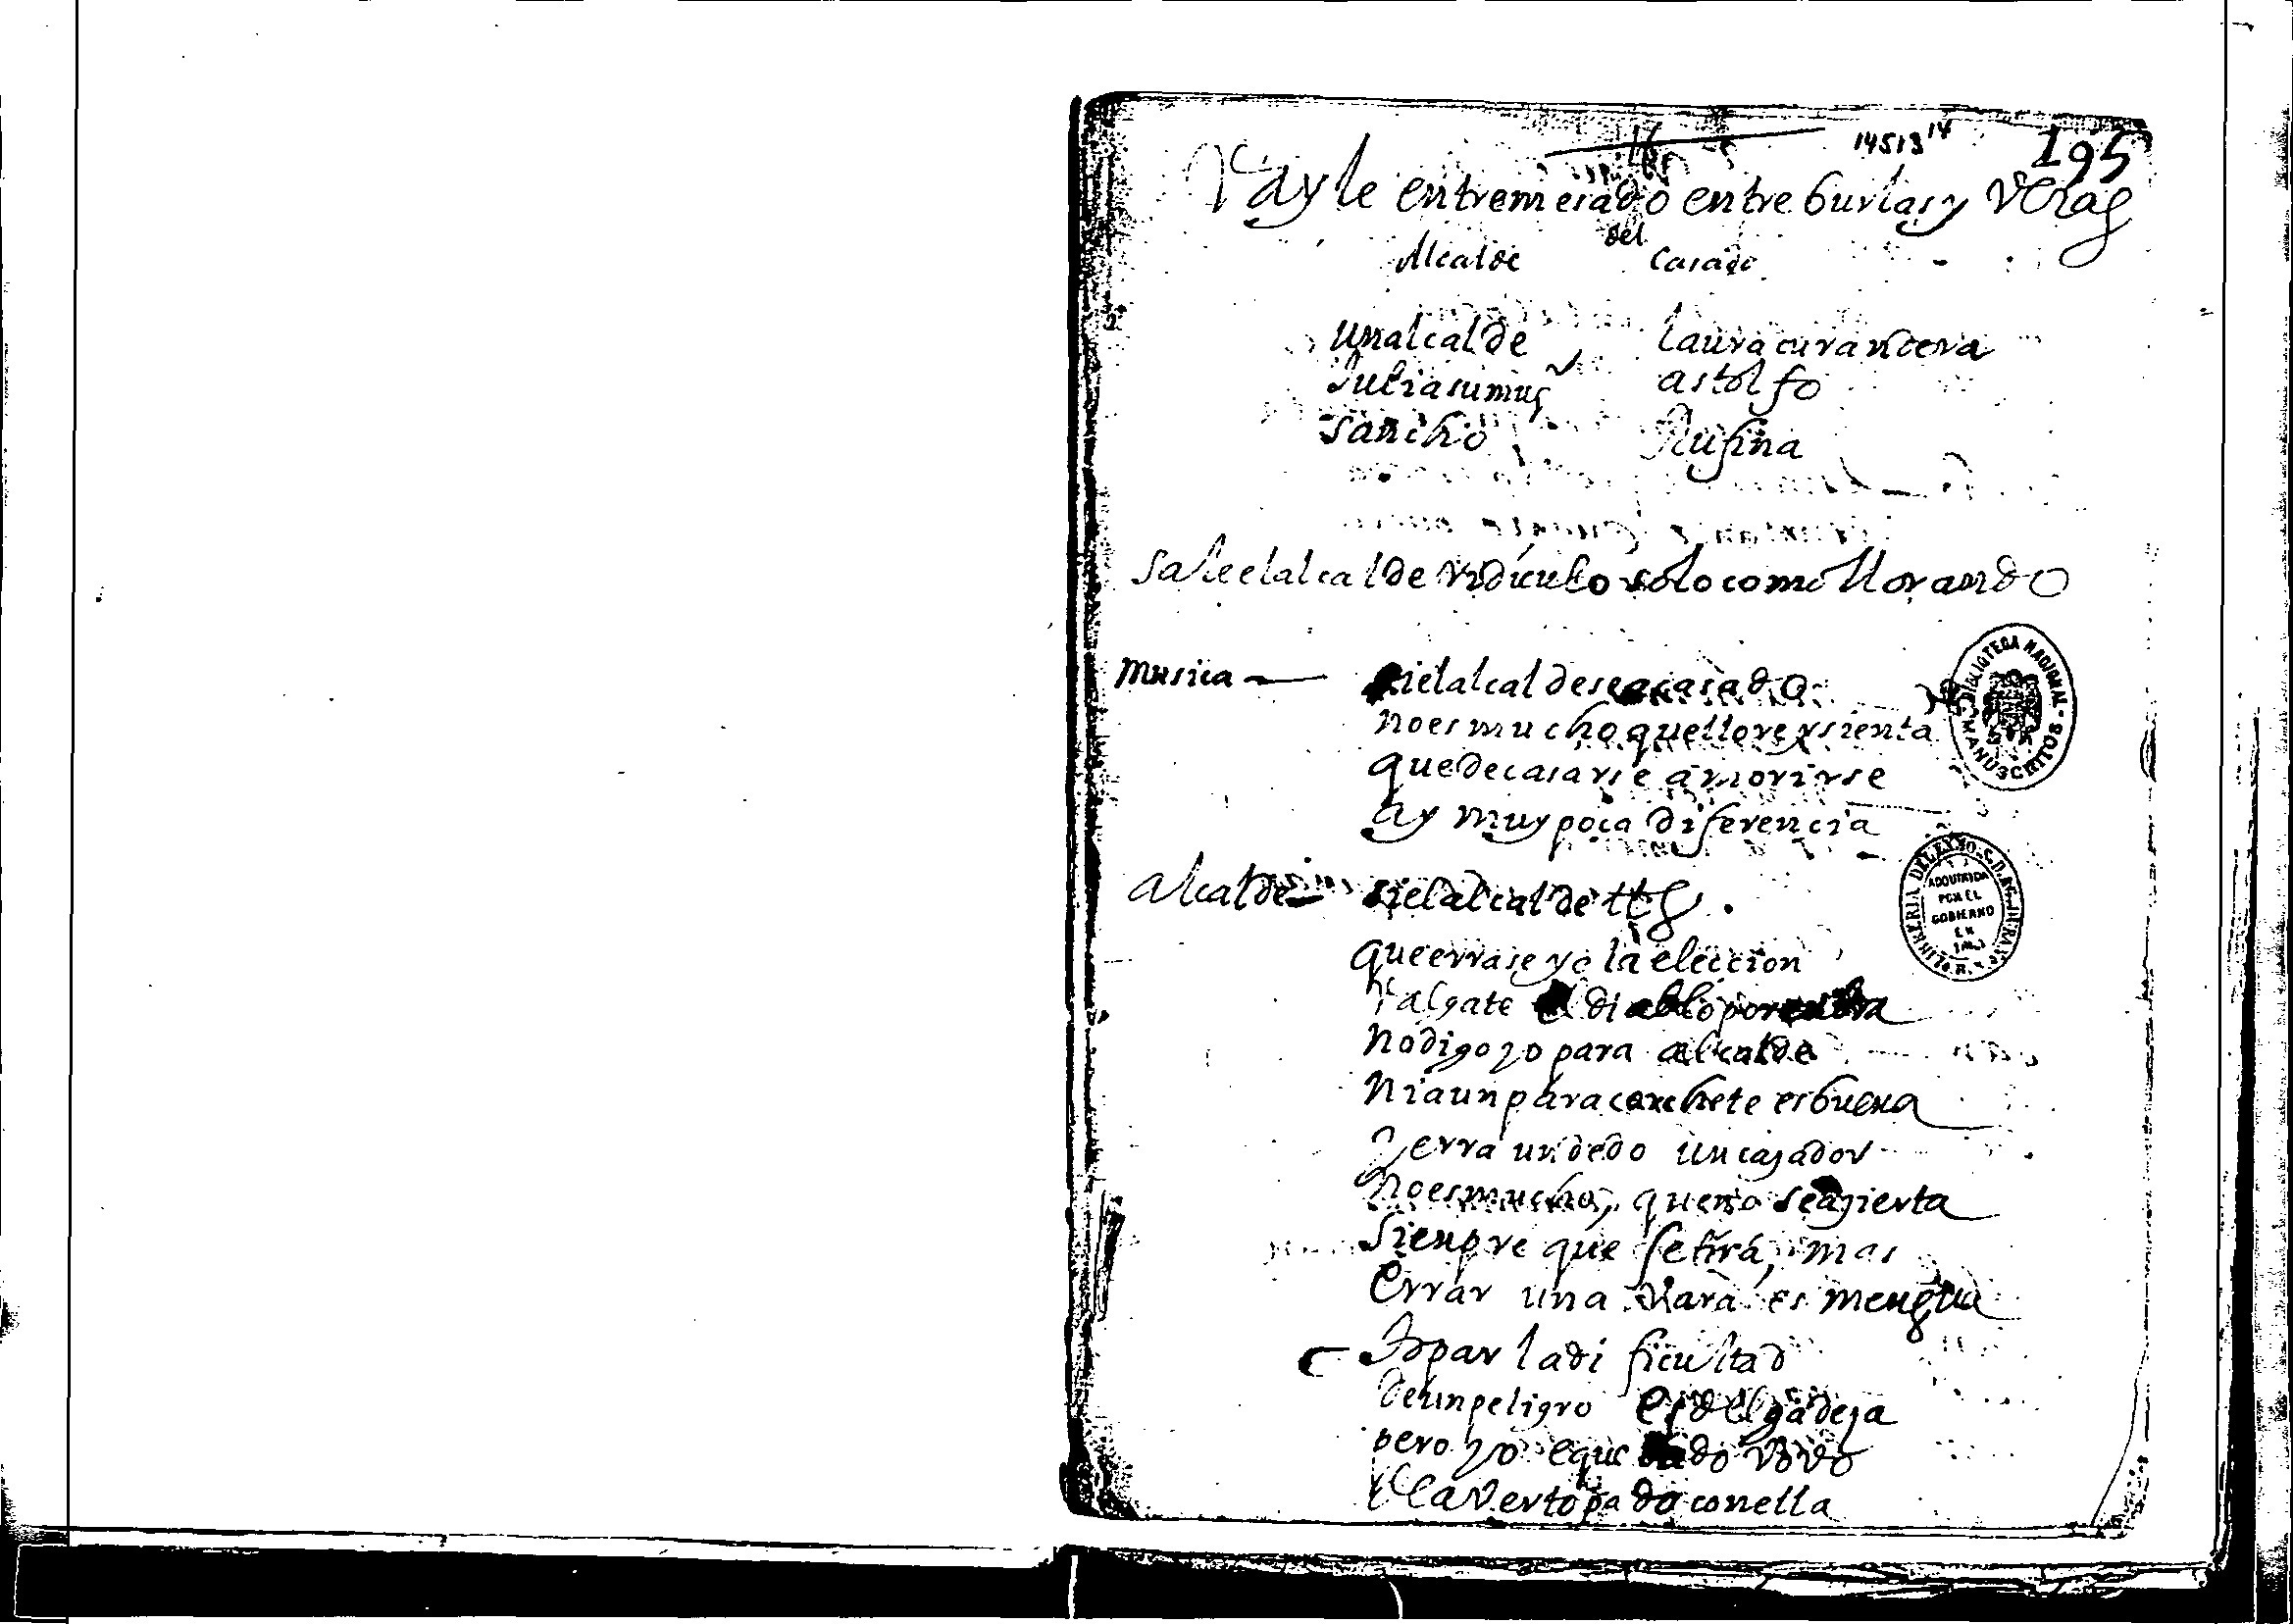 14513 14
195
Vayle entremesado entre burlas y veras
del
Alcalde Casado
Un alcalde laura curandera
Julia su mug astolfo
Sancho Rufina
Sale el alcalde ridiculo solo como llorando
Musica — si el alcalde se a casado
no es mucho que llore y sienta
que de casarse a morirse
ay muy poca diferencia
BIBLIOTECA NACIONAL - MANUSCRITOS
alcalde — si el alcalde ett
ADQUIRIDA POR EL GOBIERNO EN
que errase yo la eleccion
Valgate el diablo por
no digo yo para alcalde
ni aun para corchete es buena
yerra un dedo un cazador
no es mucho, que no se azierta
Sienpre que se tira, mas
Errar una vara es mengua
Topar la dificultad
de un peligro es delgadeza
pero yo e que
el aver topado con ella